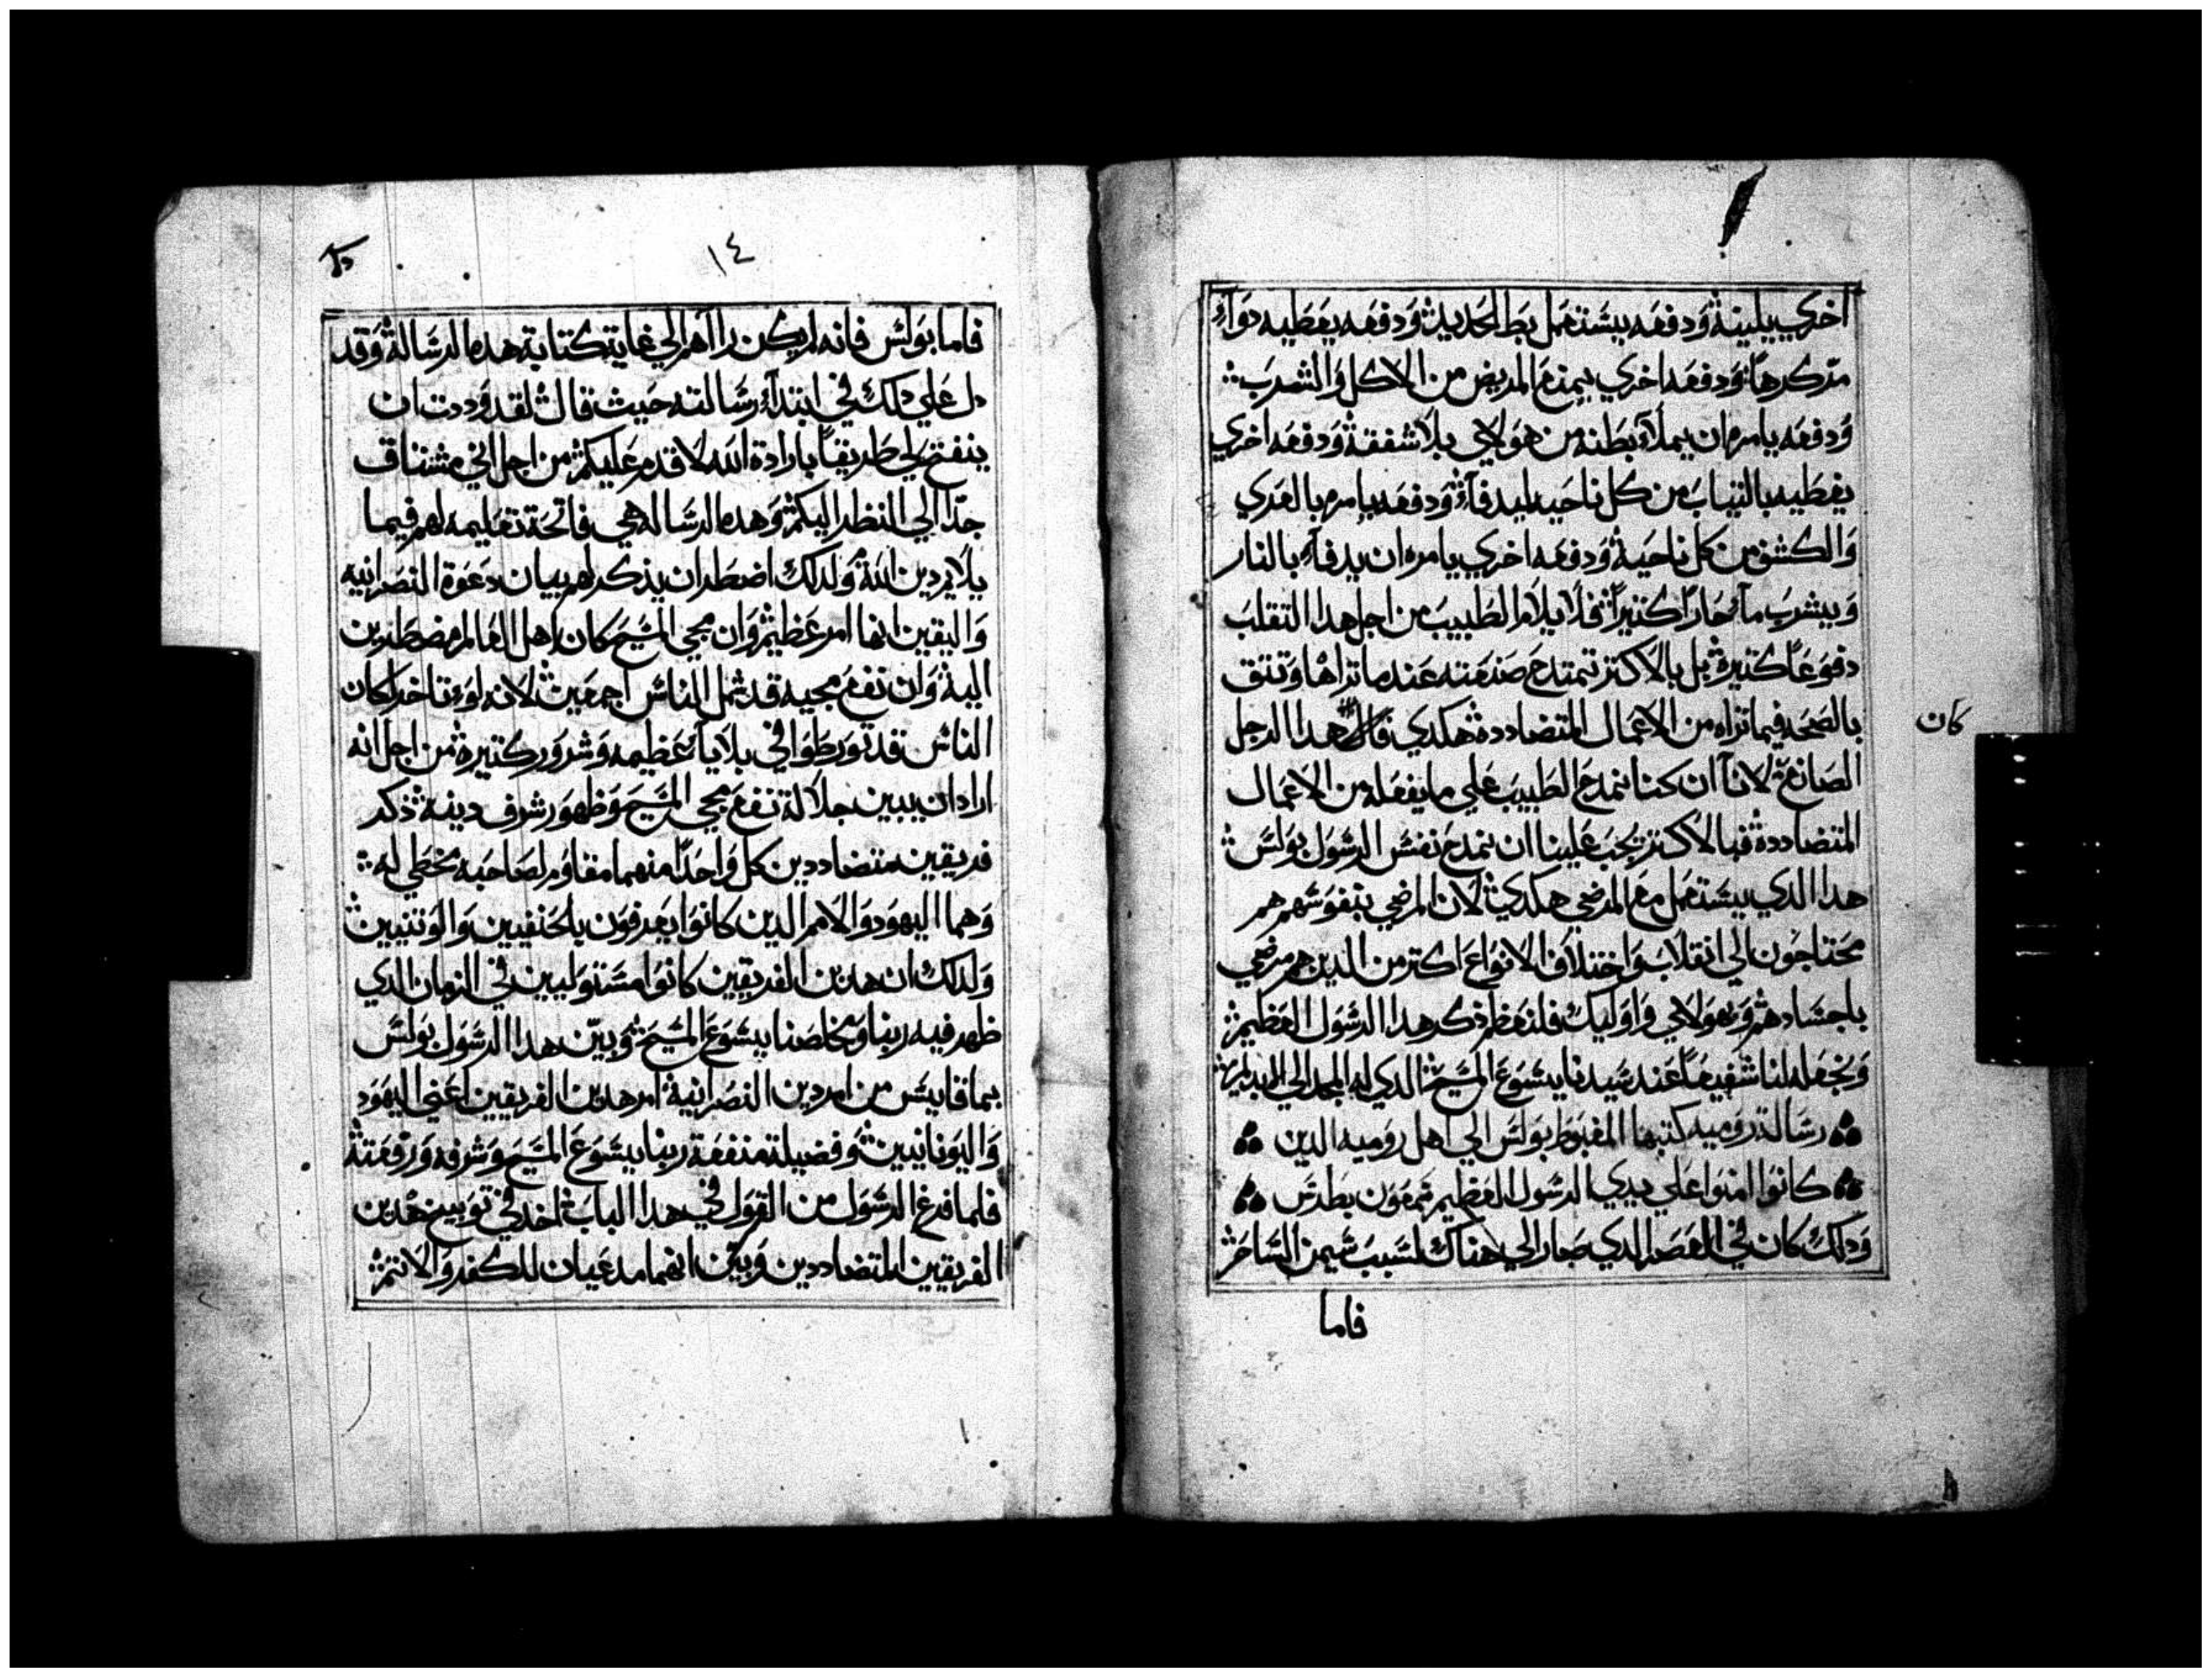 اخري يلينة ودفعه يستعمل بط الحديد ودفعه يعطيه دوآء
متكرهاً ودفعه اخري يمنع المريض من الاكل والشرب
ودفعه يامره ان يملاء بطنه من هولاي بلا شفقة ودفعه اخري
يغطيه بالتياب من كل ناحيه ليدفآء ودفعه يامره بالعري
والكشف من كل ناحية ودفعه اخري يامره ان يدفآء بالنار
ويشرب مآء حاراً كتيراً فلا يلام الطبيب من اجل هدا التقلب
دفوعاً كتيرة بل بالاكتر تمتدح صنعته عند ما تراها وتتق
بالصحه فيما تراه من الاعمال المتضاددة هكدي هدا الرجل
كان
الصانع لاننا ان كنا نمدح الطبيب علي ما يفعله من الاعمال
المتضاددة فبالاكتر يجب علينا ان نمدح نفس الرسول بولس
هدا الدي يستعمل مع المرضي هكدي لان المرضي بنفوسهم هم
محتاجون الي انقلاب واختلاف الانواع اكتر من الدين هم مرضي
باجسادهم وهولاي واوليك فلنعظم ذكر هدا الرسول العظيم
ونجعله لنا شفيعاً عند سيدنا يسوع المسيح الدي له المجد الي الابد امين
رسالة روميه كتبها المغبوط بولس الي اهل روميه الدين
كانوا امنوا علي يدي الرسول العظيم سمعون بطرس
ودلك كان في العصر الدي صار الي هناك لسبب سيمن الساحر
فاما
١٤
فاما بولس فانه لم يكن راآهم الي غاية كتابة هده الرسالة وقد
دل علي دلك في ابتدآء رسالته حيث قال لقد وددت ان
ينفتح لي طريقاً بارادة الله لاقدم عليكم من اجل اني مشتاق
جدّا الي النظر اليكم وهده الرساله هي فاتحة تعليمه لهم فيما
يلايم دين الله ولدلك اضطر ان يذكر لهم بيان دعوة النصرانيه
واليقين انها امر عظيم وان مجي المسيح كان اهل العالم مضطرين
الية وان نفع مجيه قد شمل الناس اجمعين لانه لو تاخر لكان
الناس قد تورطوا في بلايآء عظيمه وشرور كتيرة من اجل انه
اراد ان يبين جلالة نفع مجي المسيح وظهور شرف دينه ذكر
فريقين متضاددين كل واحدا منهما مقاوم لصاحبه يخطي له
وهما اليهود والامم الدين كانوا يعرفون بالحنفيين والوتنيين
ولدلك ان هدين الفريقين كانوا مستوليين في الزمان الدي
ظهر فيه ربنا ومخلصنا يسوع المسيح وبيّن هدا الرسول بولس
بما قايس من امر دين النصرانية امر هدين الفريقين اعني اليهود
واليونانيين وفضيلة منفعة ربنا يسوع المسيح وشرفه ورفعته
فلما فرغ الرسول من القول في هدا الباب اخد في توبيخ هدين
الفريقين المتضاددين وبيّن انهما مدعيان للكفر والاتم